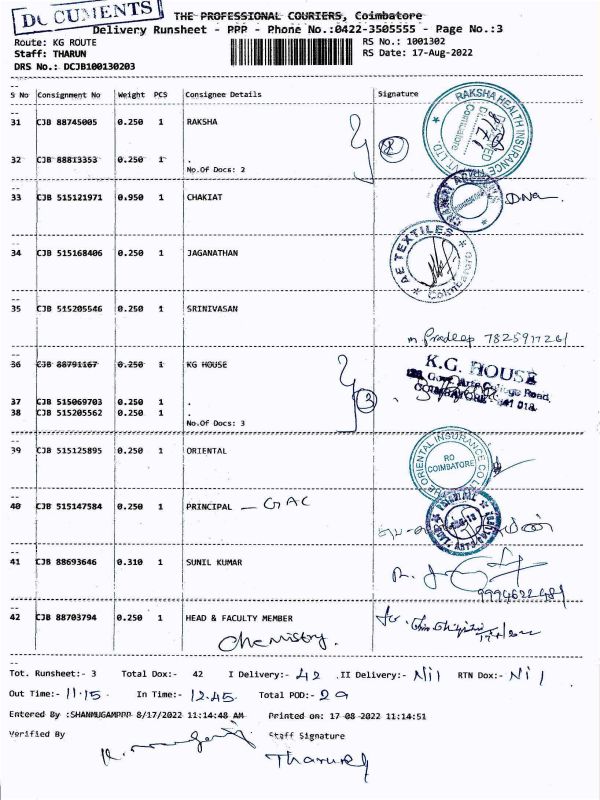 DOCUMENTS
THE PROFESSIONAL COURIERS, Coimbatore
Delivery Runsheet - PPP - Phone No.:0422-3505555 - Page No.:3
Route: KG ROUTE
RS No.: 1001302
Staff: THARUN
RS Date: 17-Aug-2022
DRS No.: DCJB100130203
S No Consignment No Weight PCS Consignee Details Signature
31 CJB 88745005 0.250 1 RAKSHA
RAKSHA HEALTH INSURANCE PVT. LTD.
Coimbatore
2
32 CJB 88813353 0.250 1 .
No.Of Docs: 2
33 CJB 515121971 0.950 1 CHAKIAT
34 CJB 515168406 0.250 1 JAGANATHAN
AE TEXTILES
Coimbatore
35 CJB 515205546 0.250 1 SRINIVASAN
m. Pradeep 7825917261
36 CJB 88791167 0.250 1 KG HOUSE
K.G. HOUSE
Govt. Arts College Road,
COIMBATORE - 641 018
3
37 CJB 515069703 0.250 1 .
38 CJB 515205562 0.250 1 .
No.Of Docs: 3
39 CJB 515125895 0.250 1 ORIENTAL
THE ORIENTAL INSURANCE CO LTD
RO
COIMBATORE
40 CJB 515147584 0.250 1 PRINCIPAL - GAC
41 CJB 88693646 0.310 1 SUNIL KUMAR
9994622481
42 CJB 88703794 0.250 1 HEAD & FACULTY MEMBER
Chemistry.
Tot. Runsheet:- 3 Total Dox:- 42 I Delivery:- 42 .II Delivery:- Nil RTN Dox:- Nil
Out Time:- 11.15 In Time:- 12.45 Total POD:- 29
Entered By :SHANMUGAMPPP 8/17/2022 11:14:48 AM Printed on: 17-08-2022 11:14:51
Verified By Staff Signature